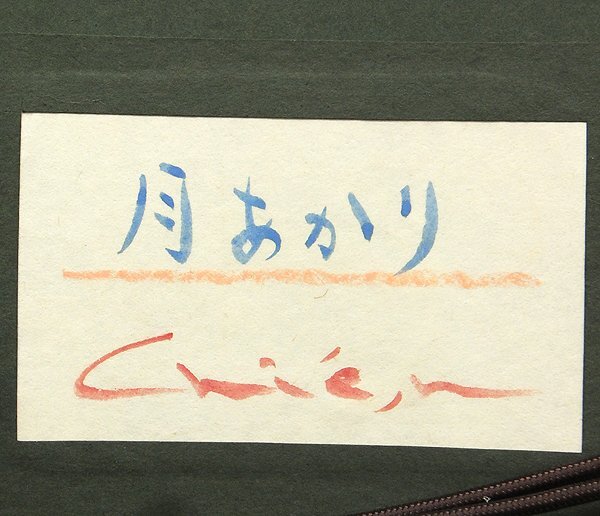 月あかり
Chié,n